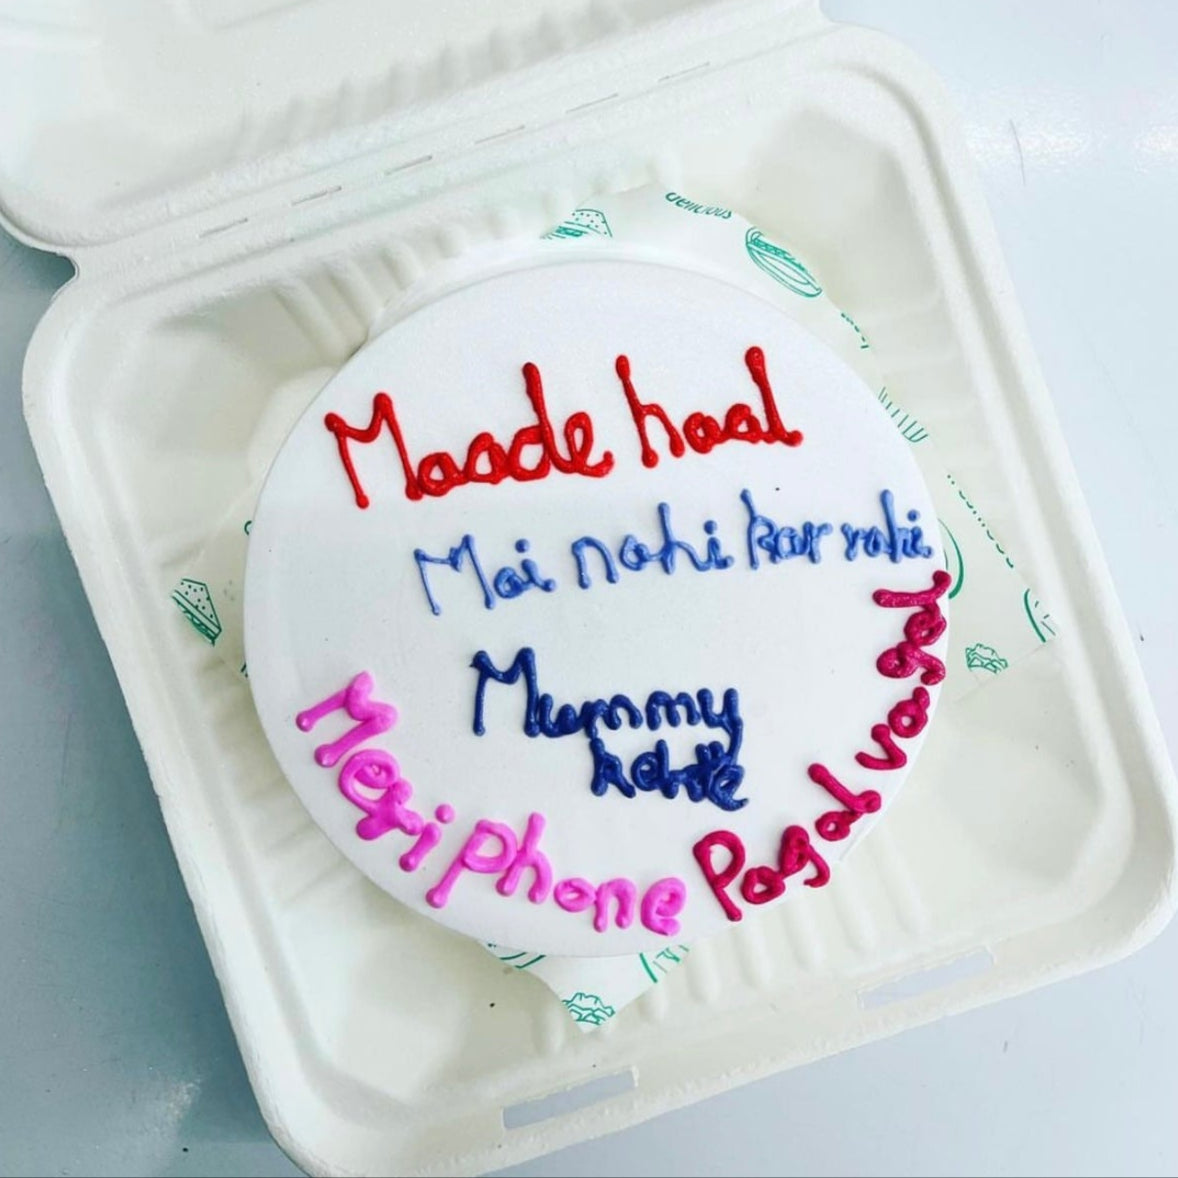 delicious
Maade haal
Mai nahi kar rahi
Mummy
kehte
Meri phone
Pagal vagal